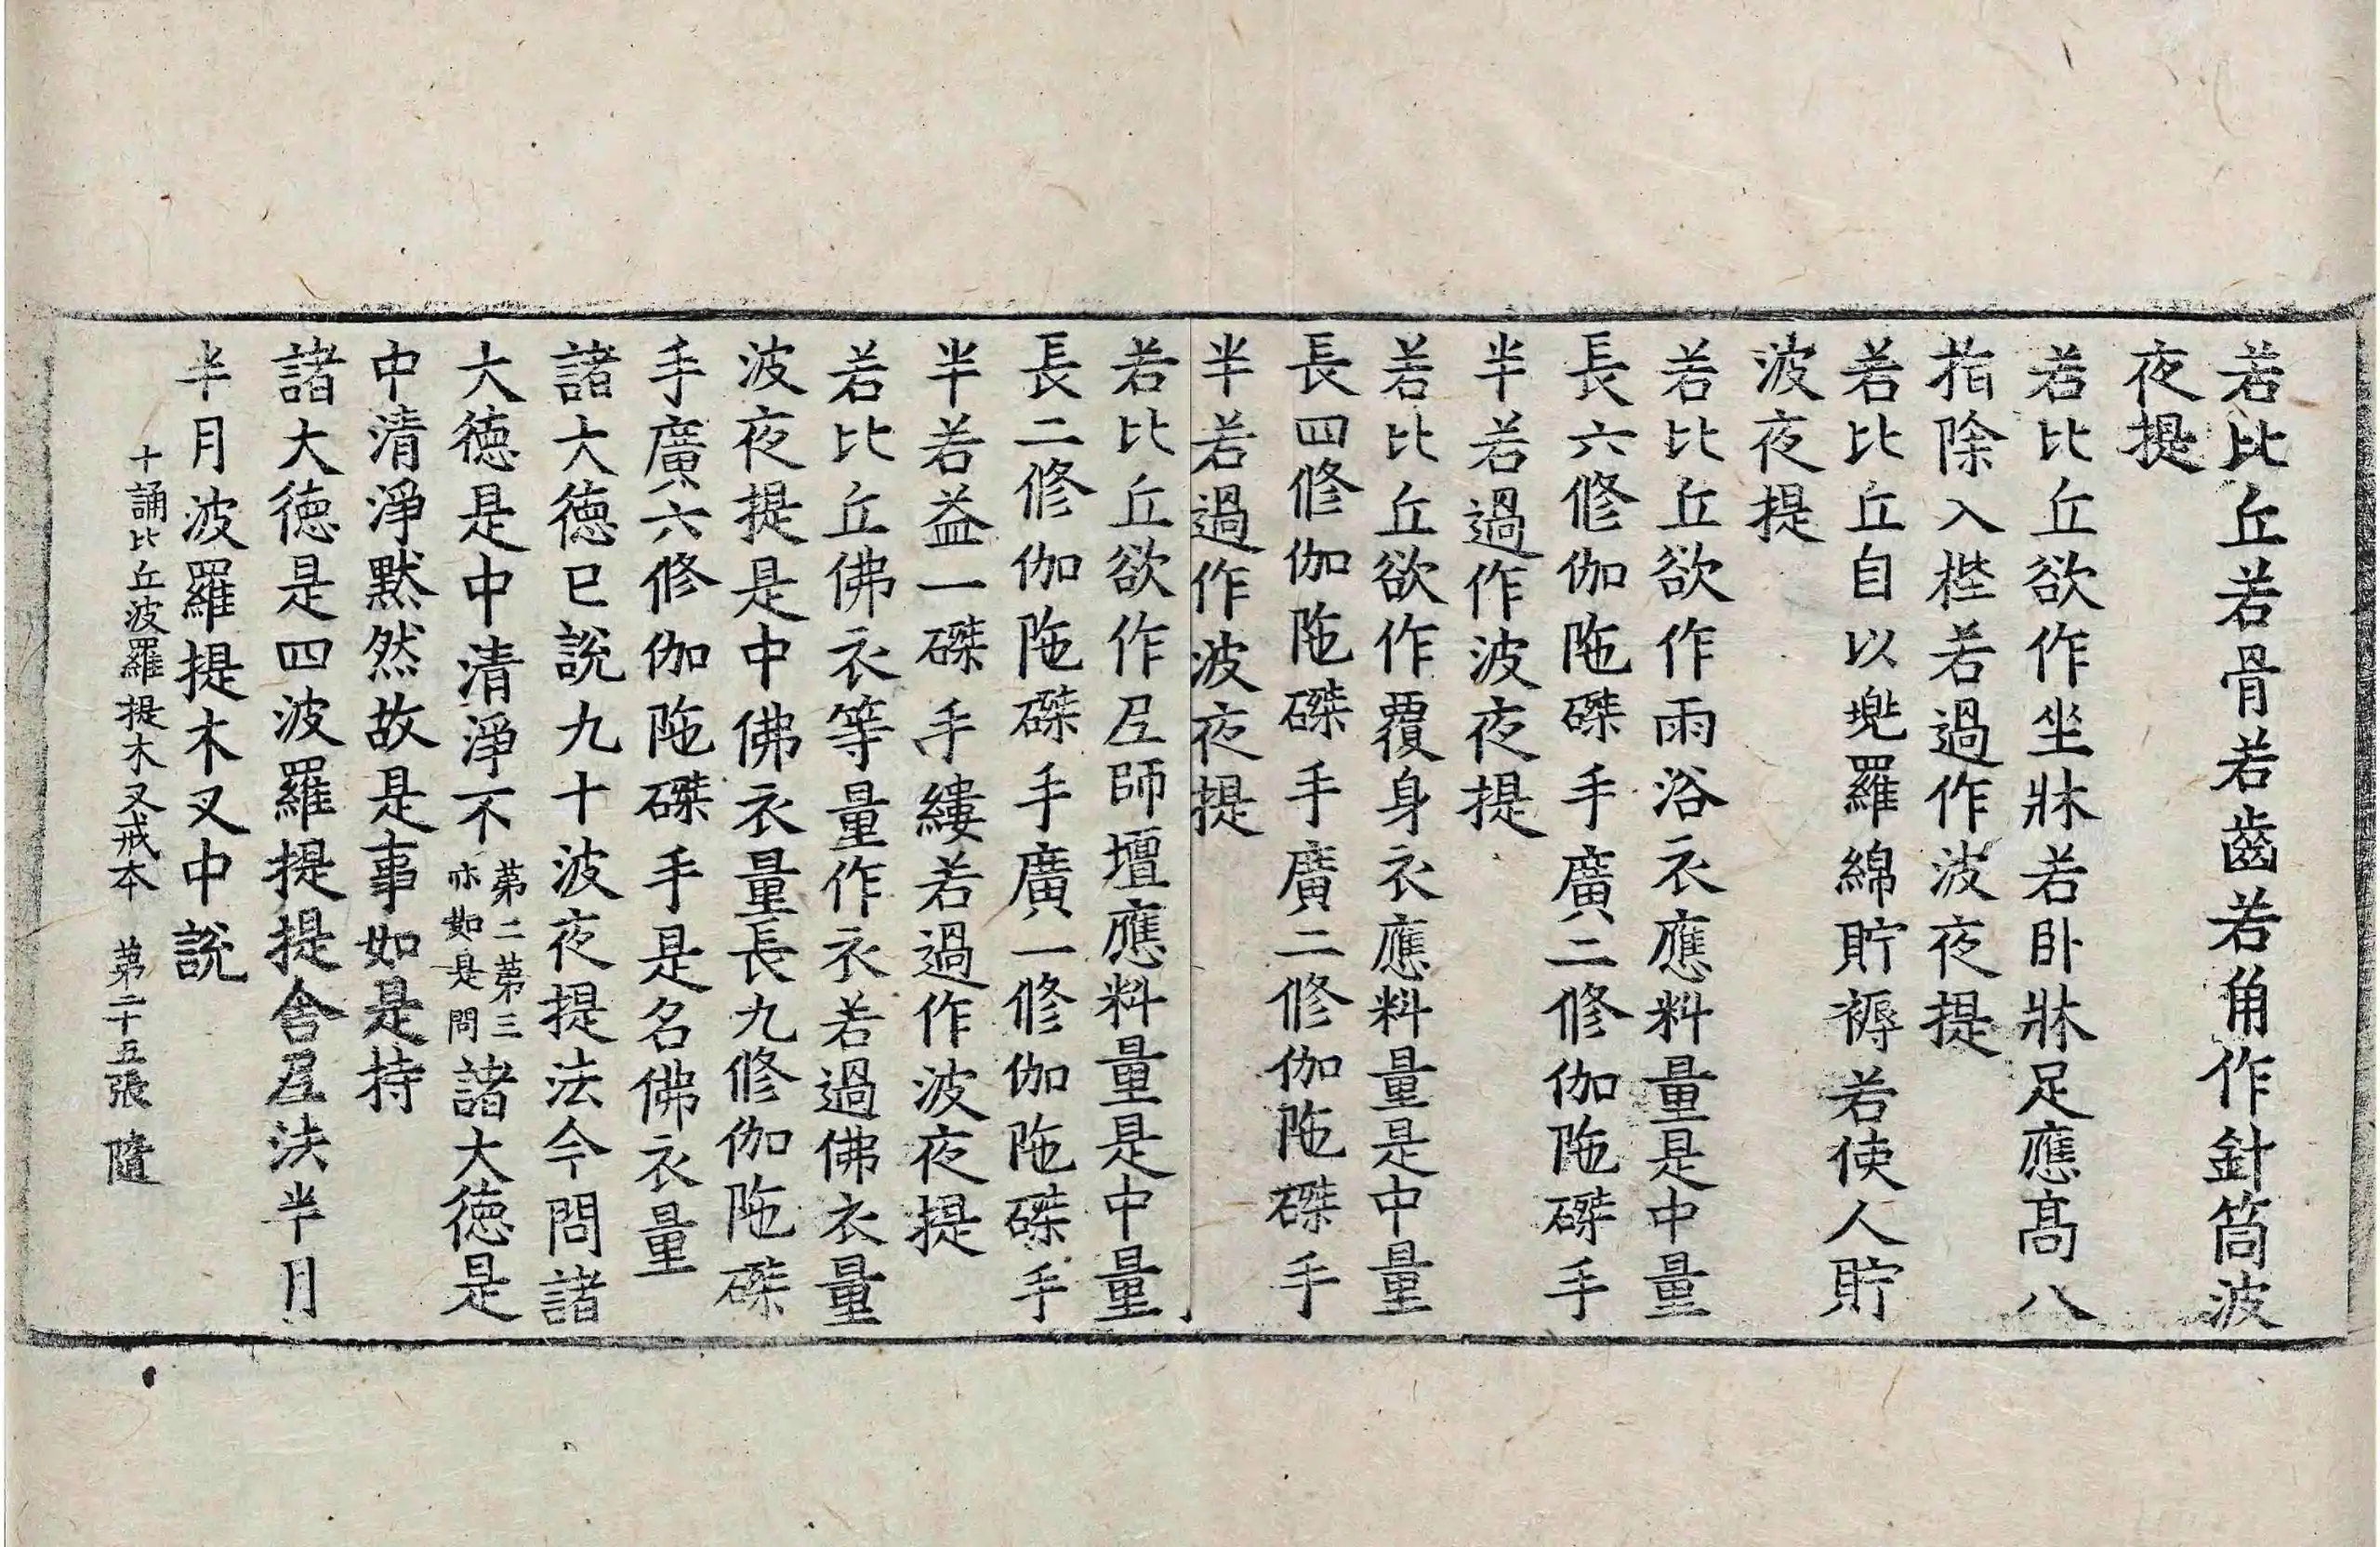 若比丘若骨若齒若角作針筒波
夜提
若比丘欲作坐牀若臥牀足應髙八
指除入梐若過作波夜提
若比丘自以兠羅綿貯褥若使人貯
波夜提
若比丘欲作雨浴衣應料量是中量
長六修伽陁磔手廣二修伽陁磔手
半若過作波夜提
若比丘欲作覆身衣應料量是中量
長四修伽陁磔手廣二修伽陁磔手
半若過作波夜提
若比丘欲作𡰱師壇應料量是中量
長二修伽陁磔手廣一修伽陁磔手
半若益一磔手縷若過作波夜提
若比丘佛衣等量作衣若過佛衣量
波夜提是中佛衣量長九修伽陁磔
手廣六修伽陁磔手是名佛衣量
諸大德已說九十波夜提法今問諸
大德是中清淨不第二第三亦如是問諸大德是
中清淨默然故是事如是持
諸大德是四波羅提提舍𡰱法半月
半月波羅提木叉中說
十誦比丘波羅提木叉戒本 第二十五張 隨